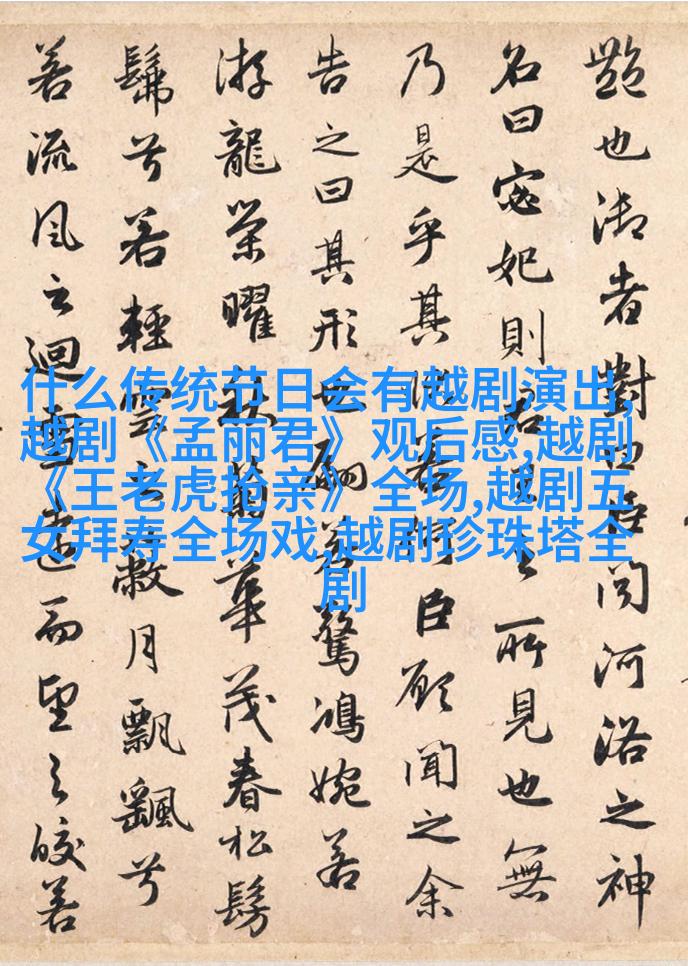 什么传统节日会有越剧演出,
越剧《孟丽君》观后感,越剧
《王老虎抢亲》全场,越剧五
女拜寿全场戏,越剧珍珠塔全
剧
艷也御者對曰臣聞河洛之神
名曰宓妃則君王之所見也無
乃是乎其狀若何臣願聞之余
告之曰其形也翩若驚鴻婉若
游龍榮曜秋菊華茂春松髣
髴兮若輕雲之蔽月飄颻兮
若流風之迴雪遠而望之皎若